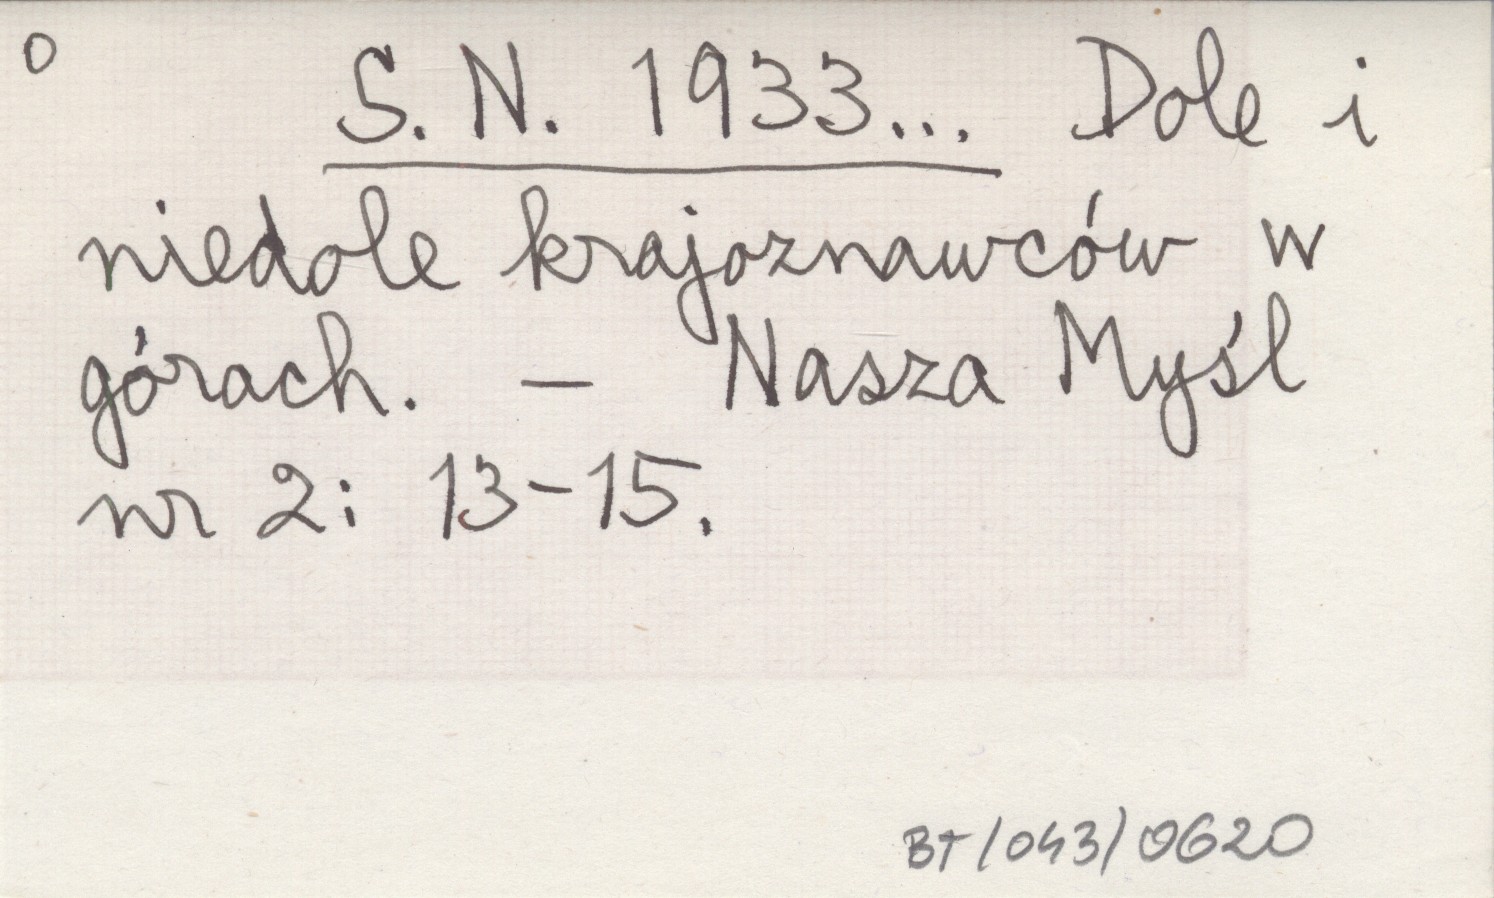 o
S. N. 1933... Dole i
niedole krajoznawców w
górach. — Nasza Myśl
nr 2: 13-15.
BT/043/0620